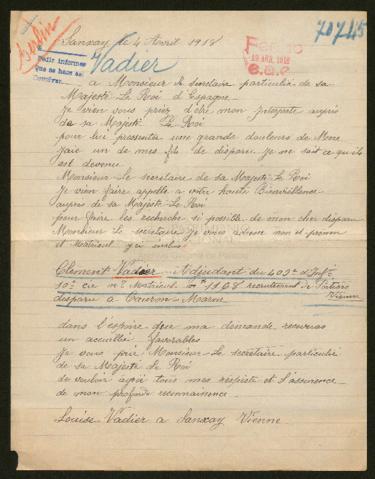 70745
Berlin
Sanxay le 4 Avril 1918
Pedir informes
que se hace se
Vadier
Fecho
19 ABR. 1918
e.a.e
a Monsieur le secretaire particulier de sa
Majesté Le Roi d'Espagne
Je vien vous priez d'être mon interprete aupres
de sa Majesté Le Roi
pour lui presenter une grande douleurs de Mere
Jaie un de mes fils de disparu Je ne sait ce qu'il
est devenu
Monsieur le secretaire de sa Majesté Le Roi
Je vien faire appelle a votre haute Bienveillence
aupres de sa Majesté Le Roi
pour faire les recherche si possible de mon cher disparu
Monsieur Le secretaire Je vous adresse nom et prenom
et Matricul qi inclus
Clement Vadier Adjudant du 409e d'Infie
10e cie no Matricul no 1108 recrutement de Poitiers
disparu a Marne Vienne
dans l'espoire que ma demande recevras
un accueille favorables
Je vous prie Monsieur Le secretaire particulié
de sa Majesté Le Roi
de vouloir agréé tous mes respects et l'assurence
de mon profonde reconnaissence
Louise Vadier a Sanxay Vienne